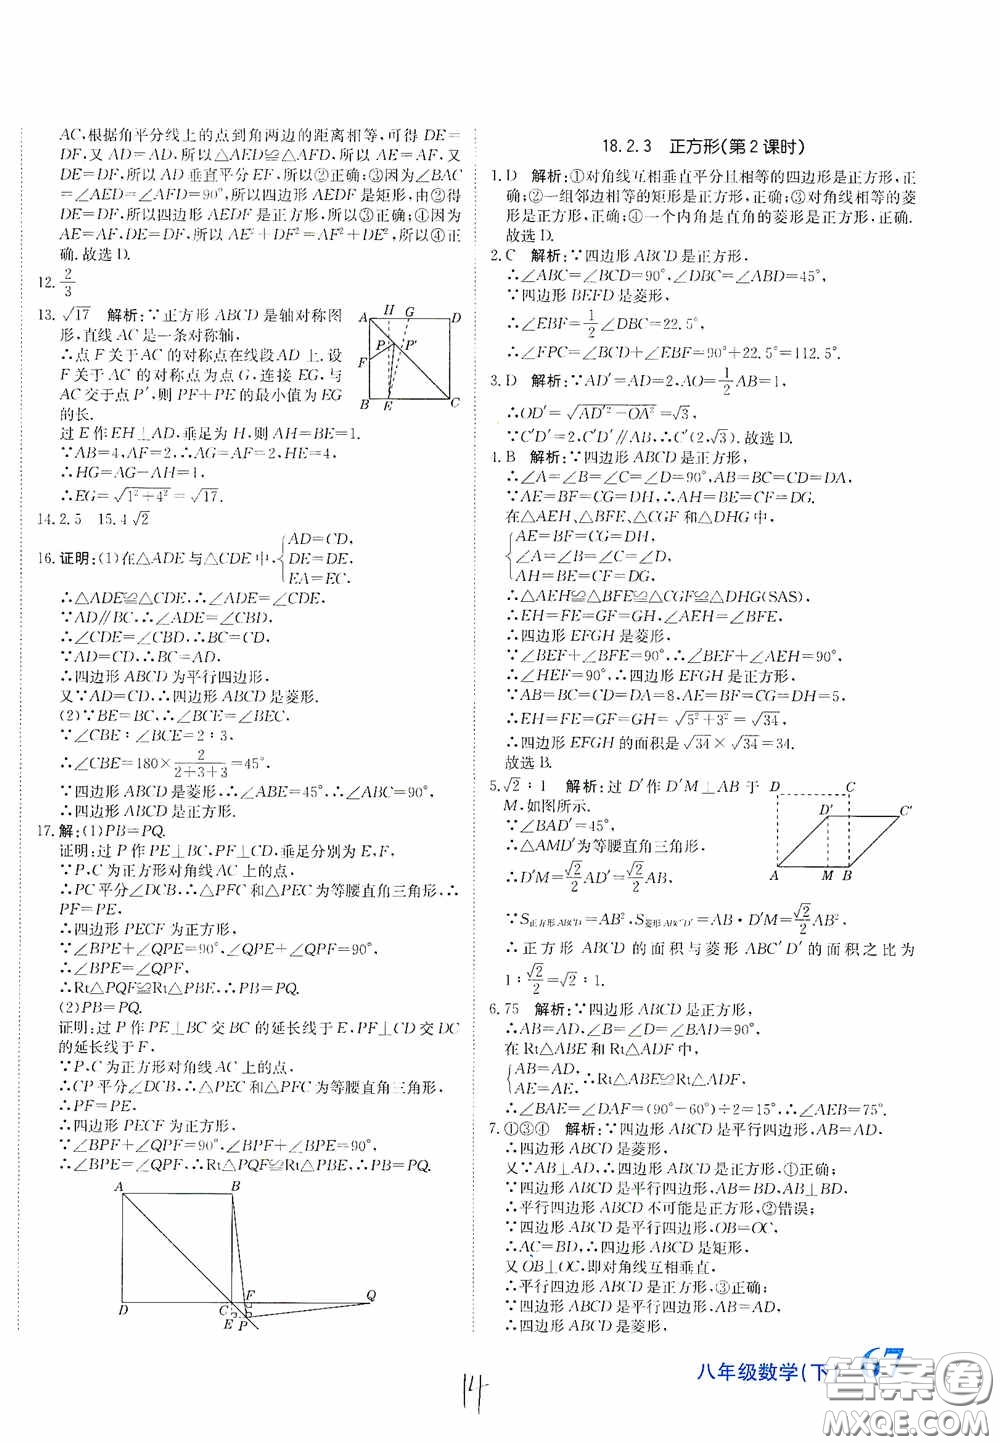 AC,根据角平分线上的点到角两边的距离相等,可得 DE=
DF,又 AD=AD,所以△AED≌△AFD,所以 AE=AF,又
DE=DF,所以 AD 垂直平分 EF,所以②正确;③因为∠BAC
=∠AED=∠AFD=90°,所以四边形 AEDF 是矩形,由②得
DE=DF,所以四边形 AEDF 是正方形,所以③正确;④因为
AE=AF,DE=DF,所以 AE²+DF²=AF²+DE²,所以④正
确.故选 D.
12. 2/3
13. √17 解析:∵正方形 ABCD 是轴对称图
形,直线 AC 是一条对称轴,
∴点 F 关于 AC 的对称点在线段 AD 上.设
F 关于 AC 的对称点为点 G,连接 EG,与
AC 交于点 P′,则 PF+PE 的最小值为 EG
的长.
过 E 作 EH⊥AD,垂足为 H,则 AH=BE=1.
∵AB=4,AF=2,∴AG=AF=2,
∴HG=AG-AH=1,
∴EG=√(1²+4²)=√17.
A H G D
P P′
F
B E C
14. 2.5 15. 4√2
16. 证明:(1)在△ADE 与△CDE 中,{AD=CD,
DE=DE,
EA=EC,
∴△ADE≌△CDE,∴∠ADE=∠CDE,
∵AD∥BC,∴∠ADE=∠CBD,
∴∠CDE=∠CBD,∴BC=CD,
∵AD=CD,∴BC=AD,
∴四边形 ABCD 为平行四边形,
又∵AD=CD,∴四边形 ABCD 是菱形.
(2)∵BE=BC,∴∠BCE=∠BEC,
∵∠CBE∶∠BCE=2∶3,
∴∠CBE=180×2/(2+3+3)=45°,
∵四边形 ABCD 是菱形,∴∠ABE=45°,∴∠ABC=90°,
∴四边形 ABCD 是正方形.
17. 解:(1)PB=PQ.
证明:过 P 作 PE⊥BC,PF⊥CD,垂足分别为 E,F,
∵P,C 为正方形对角线 AC 上的点,
∴PC 平分∠DCB,∴△PFC 和△PEC 为等腰直角三角形,∴
PF=PE,
∴四边形 PECF 为正方形,
∵∠BPE+∠QPE=90°,∠QPE+∠QPF=90°,
∴∠BPE=∠QPF,
∴Rt△PQF≌Rt△PBE,∴PB=PQ.
(2)PB=PQ.
证明:过 P 作 PE⊥BC 交 BC 的延长线于 E,PF⊥CD 交 DC
的延长线于 F,
∵P,C 为正方形对角线 AC 上的点,
∴CP 平分∠DCB,∴△PEC 和△PFC 为等腰直角三角形,
∴PF=PE,
∴四边形 PECF 为正方形,
∵∠BPF+∠QPF=90°,∠BPF+∠BPE=90°,
∴∠BPE=∠QPF,∴Rt△PQF≌Rt△PBE,∴PB=PQ.
A B
D C F Q
E P
18.2.3 正方形(第 2 课时)
1. D 解析:①对角线互相垂直平分且相等的四边形是正方形,
正确;②一组邻边相等的矩形是正方形,正确;③对角线相等的菱
形是正方形,正确;④一个内角是直角的菱形是正方形,正确.
故选 D.
2. C 解析:∵四边形 ABCD 是正方形,
∴∠ABC=∠BCD=90°,∠DBC=∠ABD=45°,
∵四边形 BEFD 是菱形,
∴∠EBF=1/2∠DBC=22.5°,
∴∠FPC=∠FBC+∠EBF=90°+22.5°=112.5°.
3. D 解析:∵AD′=AD=2,AO=1/2AB=1,
∴OD′=√(AD′²-OA²)=√3,
∵C′D′=2,C′D′∥AB,∴C′(2,√3).故选 D.
4. B 解析:∵四边形 ABCD 是正方形,
∴∠A=∠B=∠C=∠D=90°,AB=BC=CD=DA,
∵AE=BF=CG=DH,∴AH=BE=CF=DG.
在△AEH、△BFE、△CGF 和△DHG 中,
{AE=BF=CG=DH,
∠A=∠B=∠C=∠D,
AH=BE=CF=DG,
∴△AEH≌△BFE≌△CGF≌△DHG(SAS).
∴EH=FE=GF=GH,∠AEH=∠BFE,
∴四边形 EFGH 是菱形,
∵∠BEF+∠BFE=90°,∴∠BEF+∠AEH=90°,
∴∠HEF=90°,∴四边形 EFGH 是正方形,
∵AB=BC=CD=DA=8,AE=BF=CG=DH=5,
∴EH=FE=GF=GH=√(5²+3²)=√34,
∴四边形 EFGH 的面积是√34×√34=34.
故选 B.
5. √2∶1 解析:过 D′作 D′M⊥AB 于
M,如图所示.
∵∠BAD′=45°,
∴△AMD′为等腰直角三角形,
∴D′M=√2/2AD′=√2/2AB,
D C
D′ C′
A M B
∵S正方形ABCD=AB²,S菱形ABC′D′=AB·D′M=√2/2AB².
∴正方形 ABCD 的面积与菱形 ABC′D′的面积之比为
1∶√2/2=√2∶1.
6. 75 解析:∵四边形 ABCD 是正方形,
∴AB=AD,∠B=∠D=∠BAD=90°,
在 Rt△ABE 和 Rt△ADF 中,
{AB=AD,
AE=AF, ∴Rt△ABE≌Rt△ADF,
∴∠BAE=∠DAF=(90°-60°)÷2=15°,∴∠AEB=75°.
7. ①③④ 解析:∵四边形 ABCD 是平行四边形,AB=AD,
∴四边形 ABCD 是菱形,
又∵AB⊥AD,∴四边形 ABCD 是正方形,①正确;
∵四边形 ABCD 是平行四边形,AB=BD,AB⊥BD,
∴平行四边形 ABCD 不可能是正方形,②错误;
∵四边形 ABCD 是平行四边形,OB=OC,
∴AC=BD,∴四边形 ABCD 是矩形,
又 OB⊥OC,即对角线互相垂直,
∴平行四边形 ABCD 是正方形,③正确;
∵四边形 ABCD 是平行四边形,AB=AD,
∴四边形 ABCD 是菱形,
八年级数学(下) 67
14
答案圈
MXQE.COM